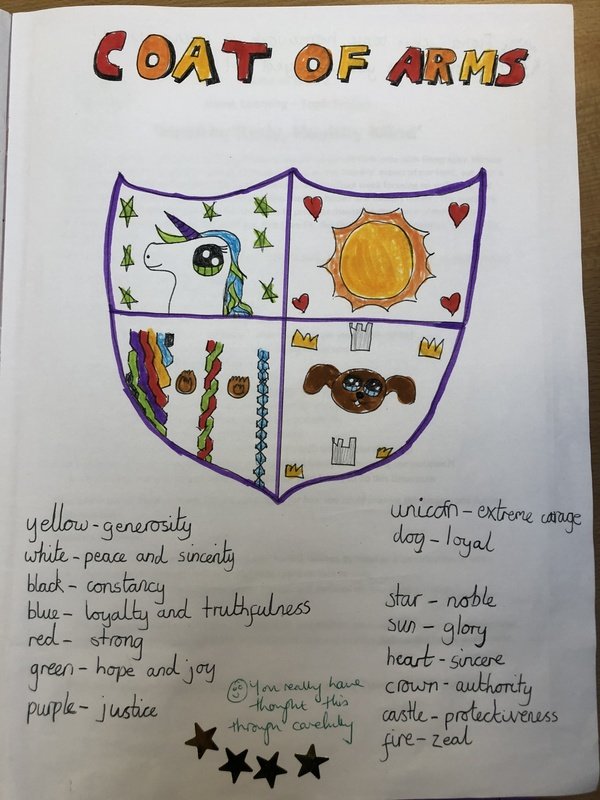 COAT OF ARMS
yellow - generosity
white - peace and sincerity
black - constancy
blue - loyalty and truthfulness
red - strong
green - hope and joy
purple - justice
unicorn - extreme corage
dog - loyal
star - noble
sun - glory
heart - sincere
crown - authority
castle - protectiveness
fire - zeal
You really have
thought this
through carefully